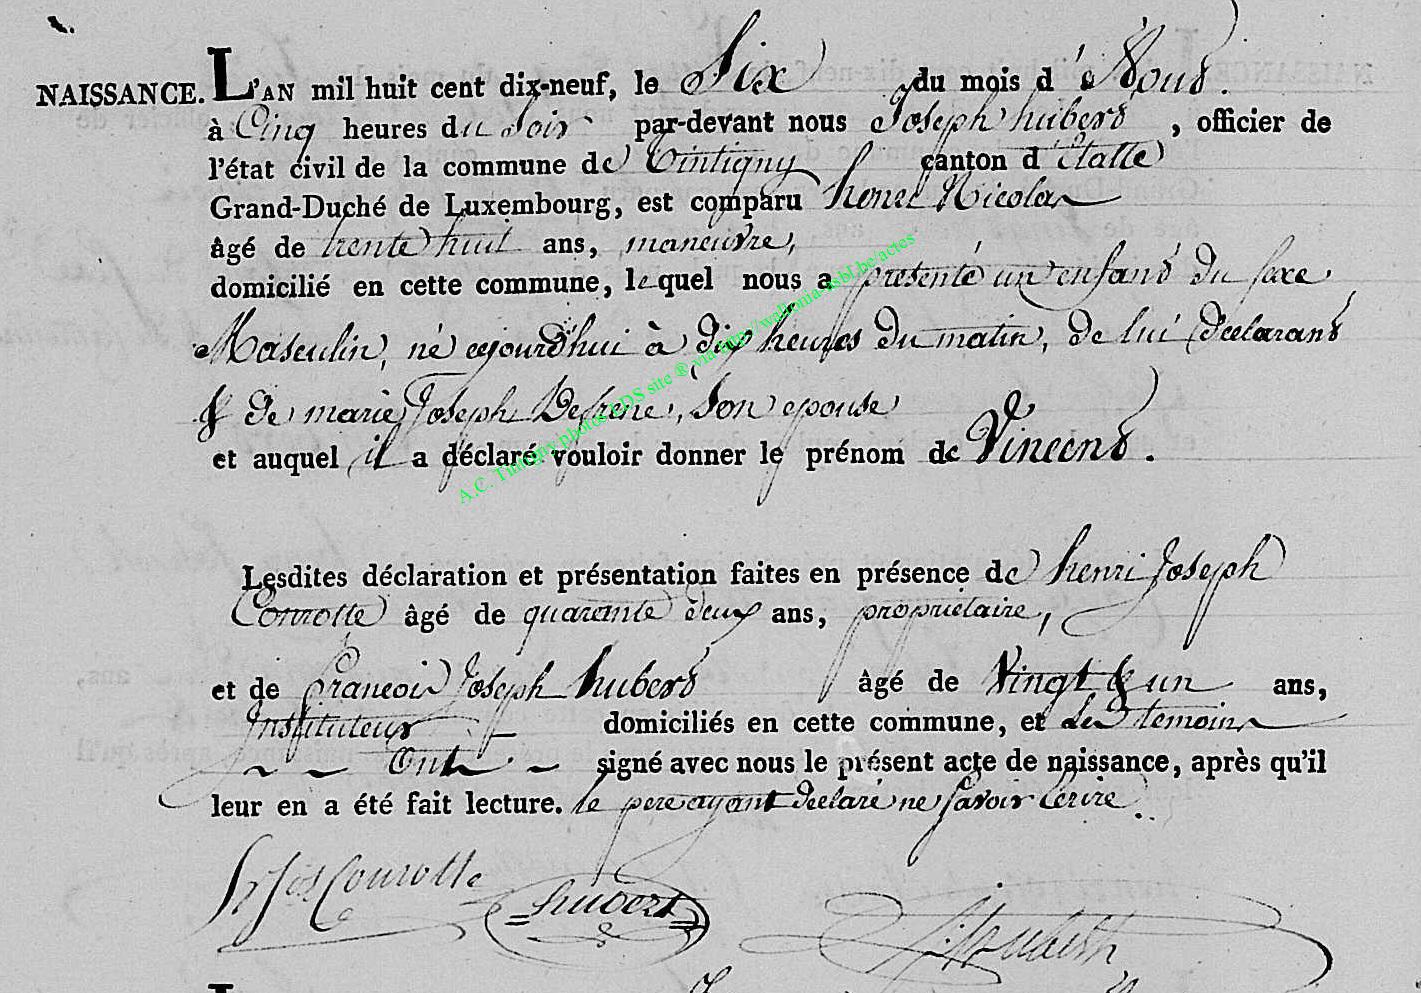 NAISSANCE. L'AN mil huit cent dix-neuf, le Six du mois d'Aoud.
à Cinq heures du Soir par-devant nous Joseph hubert, officier de
l'état civil de la commune de Tintigny canton d'Etalle
Grand-Duché de Luxembourg, est comparu Nicolas
âgé de trente huit ans, maneuvre,
domicilié en cette commune, lequel nous a presenté un enfant du sexe
Masculin, né cejourd'hui à dix heures du matin, de lui declarant
& de marie Joseph Defrene, Son epouse
et auquel il a déclaré vouloir donner le prénom de Vincent.
A.C. Tintigny photos LDS site ® via http://wallonia-asbl.be/actes
Lesdites déclaration et présentation faites en présence de henri Joseph
Courotte âgé de quarante deux ans, propriétaire,
et de Francois Joseph hubert âgé de Vingt & un ans,
Instituteur domiciliés en cette commune, et les temoins
Ont signé avec nous le présent acte de naissance, après qu'il
leur en a été fait lecture. le pere ayant declaré ne Savoir Ecrire.
Courotte hubert